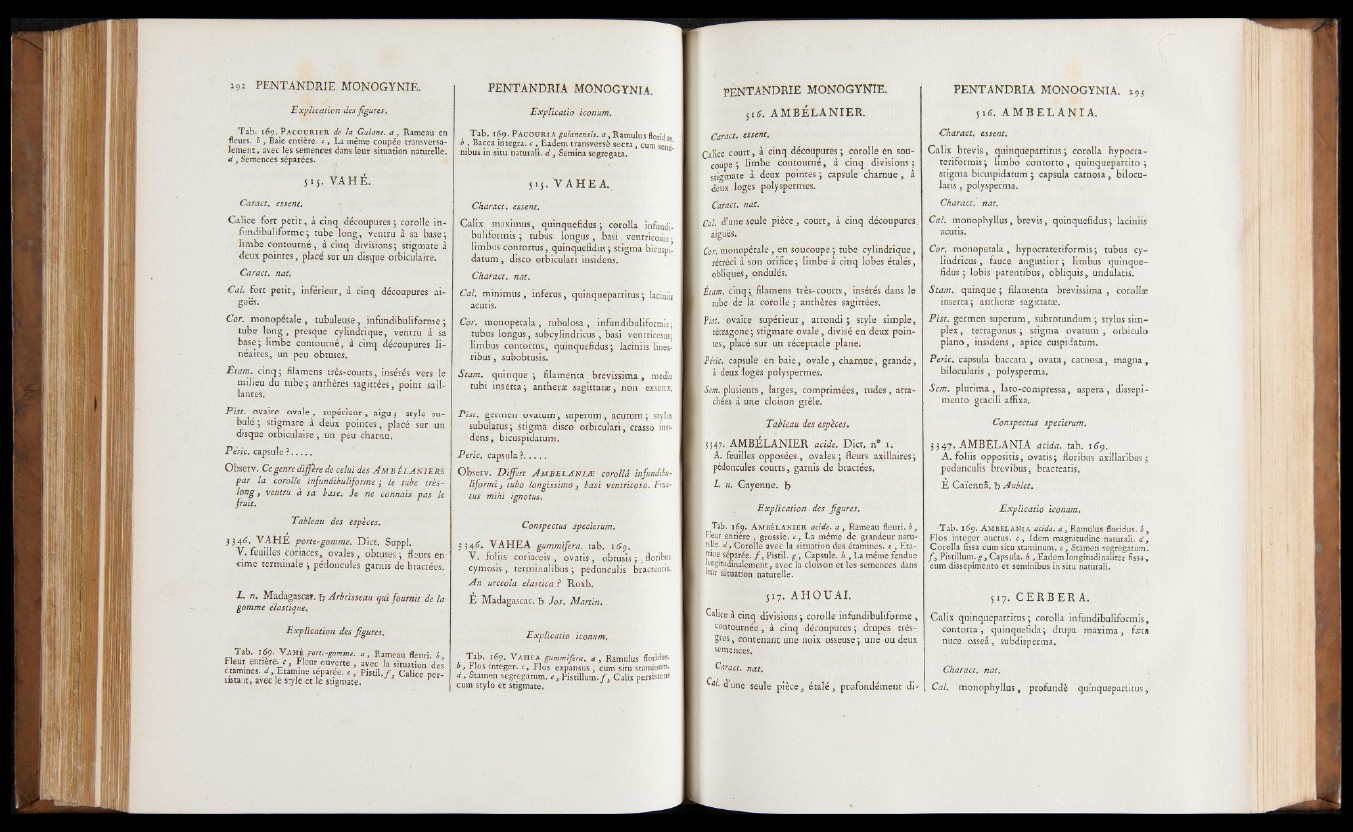 292 PENTANDRIE MONOGYNIE.
Explication des figures.
Tab. 169. PACOURIER de la Guiane. a, Rameau en
fleurs. b, Baie entière. c, La même coupée transversa-
lement, avec les semences dans leur situation naturelle.
d, Semences séparées.
515. VAHÉ.
Caract. essent.
Calice fort petit, à cinq découpures; corolle in-
fundibuliforme; tube long, ventru à sa base;
limbe contourné, à cinq divisions; stigmate à
deux pointes, placé sur un disque orbiculaire.
Caract. nat.
Cal. fort petit, inférieur, à cinq découpures ai-
guës.
Cor. monopétale, tubuleuse, infundibuliforme;
tube long, presque cylindrique, ventru à sa
base; limbe contourné, à cinq découpures li-
néaires, un peu obtuses.
Etam. cinq; filamens très-courts, insérés vers le
milieu du tube; anthères sagittées, point sail-
lantes.
Pist. ovaire ovale, supérieur, aigu; style su-
bulé; stigmate à deux pointes, placé sur un
disque orbiculaire, un peu charnu.
Péric. capsule?.....
Observ. Ce genre diffère de celui des AMBÉLANIERS
par la corolle infundibuliforme; le tube très-
long, ventru à sa base. Je ne connais pas le
fruit.
Tableau des espèces.
3346. VAHÉ porte-gomme. Dict. Suppl.
V. feuilles coriaces, ovales, obtuses; fleurs en
cime terminale; pédoncules garnis de bractées.
L. n. Madagascar. ♄ Arbrisseau qui fournit de la
gomme élastique.
Explication des figures.
Tab. 169. VAHÉ porte-gomme. a, Rameau fleuri. b,
Fleur entière. c, Fleur ouverte, avec la situation des
étamines. d, Etamine séparée. e, Pistil. f, Calice per-
sistant, avec le style et le stigmate.
PENTANDRIA MONOGYNIA.
Explicatio iconum.
Tab. 169. PACOURIA guianensis. a, Ramulus floridus.
b, Bacca integra. c, Eadem transversè secta, cum semi-
nibus in situ naturali. d, Semina segregata.
515. VAHEA.
Charact. essent.
Calix maximus, quinquefidus; corolla infundi-
buliformis; tubus longus, basi ventricosus;
limbus contortus, quinquefidus; stigma bicuspi-
datum, disco orbiculari insidens.
Charact. nat.
Cal. minimus, inferus, quinquepartitus; laciniis
acutis.
Cor. monopetala, tubulosa, infundibuliformis;
tubus longus, subcylindricus, basi ventricosus;
limbus contortus, quinquefidus; laciniis linea-
ribus, subobtusis.
Stam. quinque; filamenta brevissima, medio
tubi inserta; antheræ sagittatæ, non exsertæ.
Pist. germen ovatum, superum, acutum; stylus
subulatus; stigma disco orbiculari, crasso insi-
dens, bicuspidatum.
Peric. capsula?.....
Observ. Differt AMBELANIÆ corollâ infundibu-
liformi, tubo longissimo, basi ventricoso. Fruc-
tus mihi ignotus.
Conspectus specierum.
3346. VAHEA gummifera. tab. 169.
V. foliis coriaceis, ovatis, obtusis; floribus
cymosis, terminalibus; pedunculis bracteatis.
An urceola elastica? Roxb.
È Madagascar. ♄ Jos. Martin.
Explicatio iconum.
Tab. 169. VAHEA gummifera. a, Ramulus floridus.
b, Flos integer. c, Flos expansus, cum situ staminum.
d, Stamen segregatum. e, Pistillum. f, Calix persistens
cum stylo et stigmate.
PENTANDRIE MONOGYNIE.
516. AMBÉLANIER.
Caract. essent.
Calice court, à cinq découpures; corolle en sou-
coupe; limbe contourné, à cinq divisions;
stigmate à deux pointes; capsule charnue, à
deux loges polyspermes.
Caract. nat.
Cal. d'une seule pièce, court, à cinq découpures
aiguës.
Cor. monopétale, en soucoupe; tube cylindrique,
rétréci à son orifice; limbe à cinq lobes étalés,
obliques, ondulés.
Étam. cinq; filamens très-courts, insérés dans le
tube de la corolle; anthères sagittées.
Pist. ovaire supérieur, arrondi; style simple,
tétragone; stigmate ovale, divisé en deux poin-
tes, placé sur un réceptacle plane.
Péric. capsule en baie, ovale, charnue, grande,
à deux loges polyspermes.
Sem. plusieurs, larges, comprimées, rudes, atta-
chées à une cloison grêle.
Tableau des espèces.
3347. AMBÉLANIER acide. Dict. n° 1.
A. feuilles opposées, ovales; fleurs axillaires;
pédoncules courts, garnis de bractées.
L. n. Cayenne. ♄
Explication des figures.
Tab. 169. AMBÉLANIER acide. a, Rameau fleuri. b,
Fleur entière, grossie. c, La même de grandeur natu-
relle. d, Corolle avec la situation des étamines. e, Eta-
mine séparée. f, Pistil. g, Capsule. h, La même fendue
longitudinalement, avec la cloison et les semences dans
leur situation naturelle.
517. AHOUAI.
Calice à cinq divisions; corolle infundibuliforme,
contournée, à cinq découpures; drupes très-
gros, contenant une noix osseuse; une ou deux
semences.
Caract. nat.
Cal. d'une seule pièce, étalé, profondément di-
PENTANDRIA MONOGYNIA. 293
516. AMBELANIA.
Charact. essent.
Calix brevis, quinquepartitus; corolla hypocra-
teriformis; limbo contorto, quinquepartito;
stigma bicuspidatum; capsula carnosa, bilocu-
laris, polysperma.
Charact. nat.
Cal. monophyllus, brevis, quinquefidus; laciniis
acutis.
Cor. monopetala, hypocrateriformis; tubus cy-
lindricus, fauce angustior; limbus quinque-
fidus; lobis patentibus, obliquis, undulatis.
Stam. quinque; filamenta brevissima, corollæ
inserta; antheræ sagittatæ.
Pist. germen superum, subrotundum; stylus sim-
plex, tetragonus; stigma ovatum, orbiculo
plano, insidens, apice cuspidatum.
Peric. capsula baccata, ovata, carnosa, magna,
bilocularis, polysperma.
Sem. plurima, lato-compressa, aspera, dissepi-
mento gracili affixa.
Conspectus specierum.
3347. AMBELANIA acida. tab. 169.
A. foliis oppositis, ovatis; floribus axillaribus;
pedunculis brevibus, bracteatis.
È Caïennâ. ♄ Aublet.
Explicatio iconum.
Tab. 169. AMBELANIA acida. a, Ramulus floridus. b,
Flos integer auctus. c, Idem magnitudine naturali. d,
Corolla fissa cum situ staminum. e, Stamen segregatum.
f, Pistillum. g, Capsula. h, Eadem longitudinaliter fissa,
cum dissepimento et seminibus in situ naturali.
517. CERBERA.
Calix quinquepartitus; corolla infundibuliformis,
contorta, quinquefida; drupa maxima, fœta
nuce osseâ, subdisperma.
Charact. nat.
Cal. monophyllus, profundè quinquepartitus,